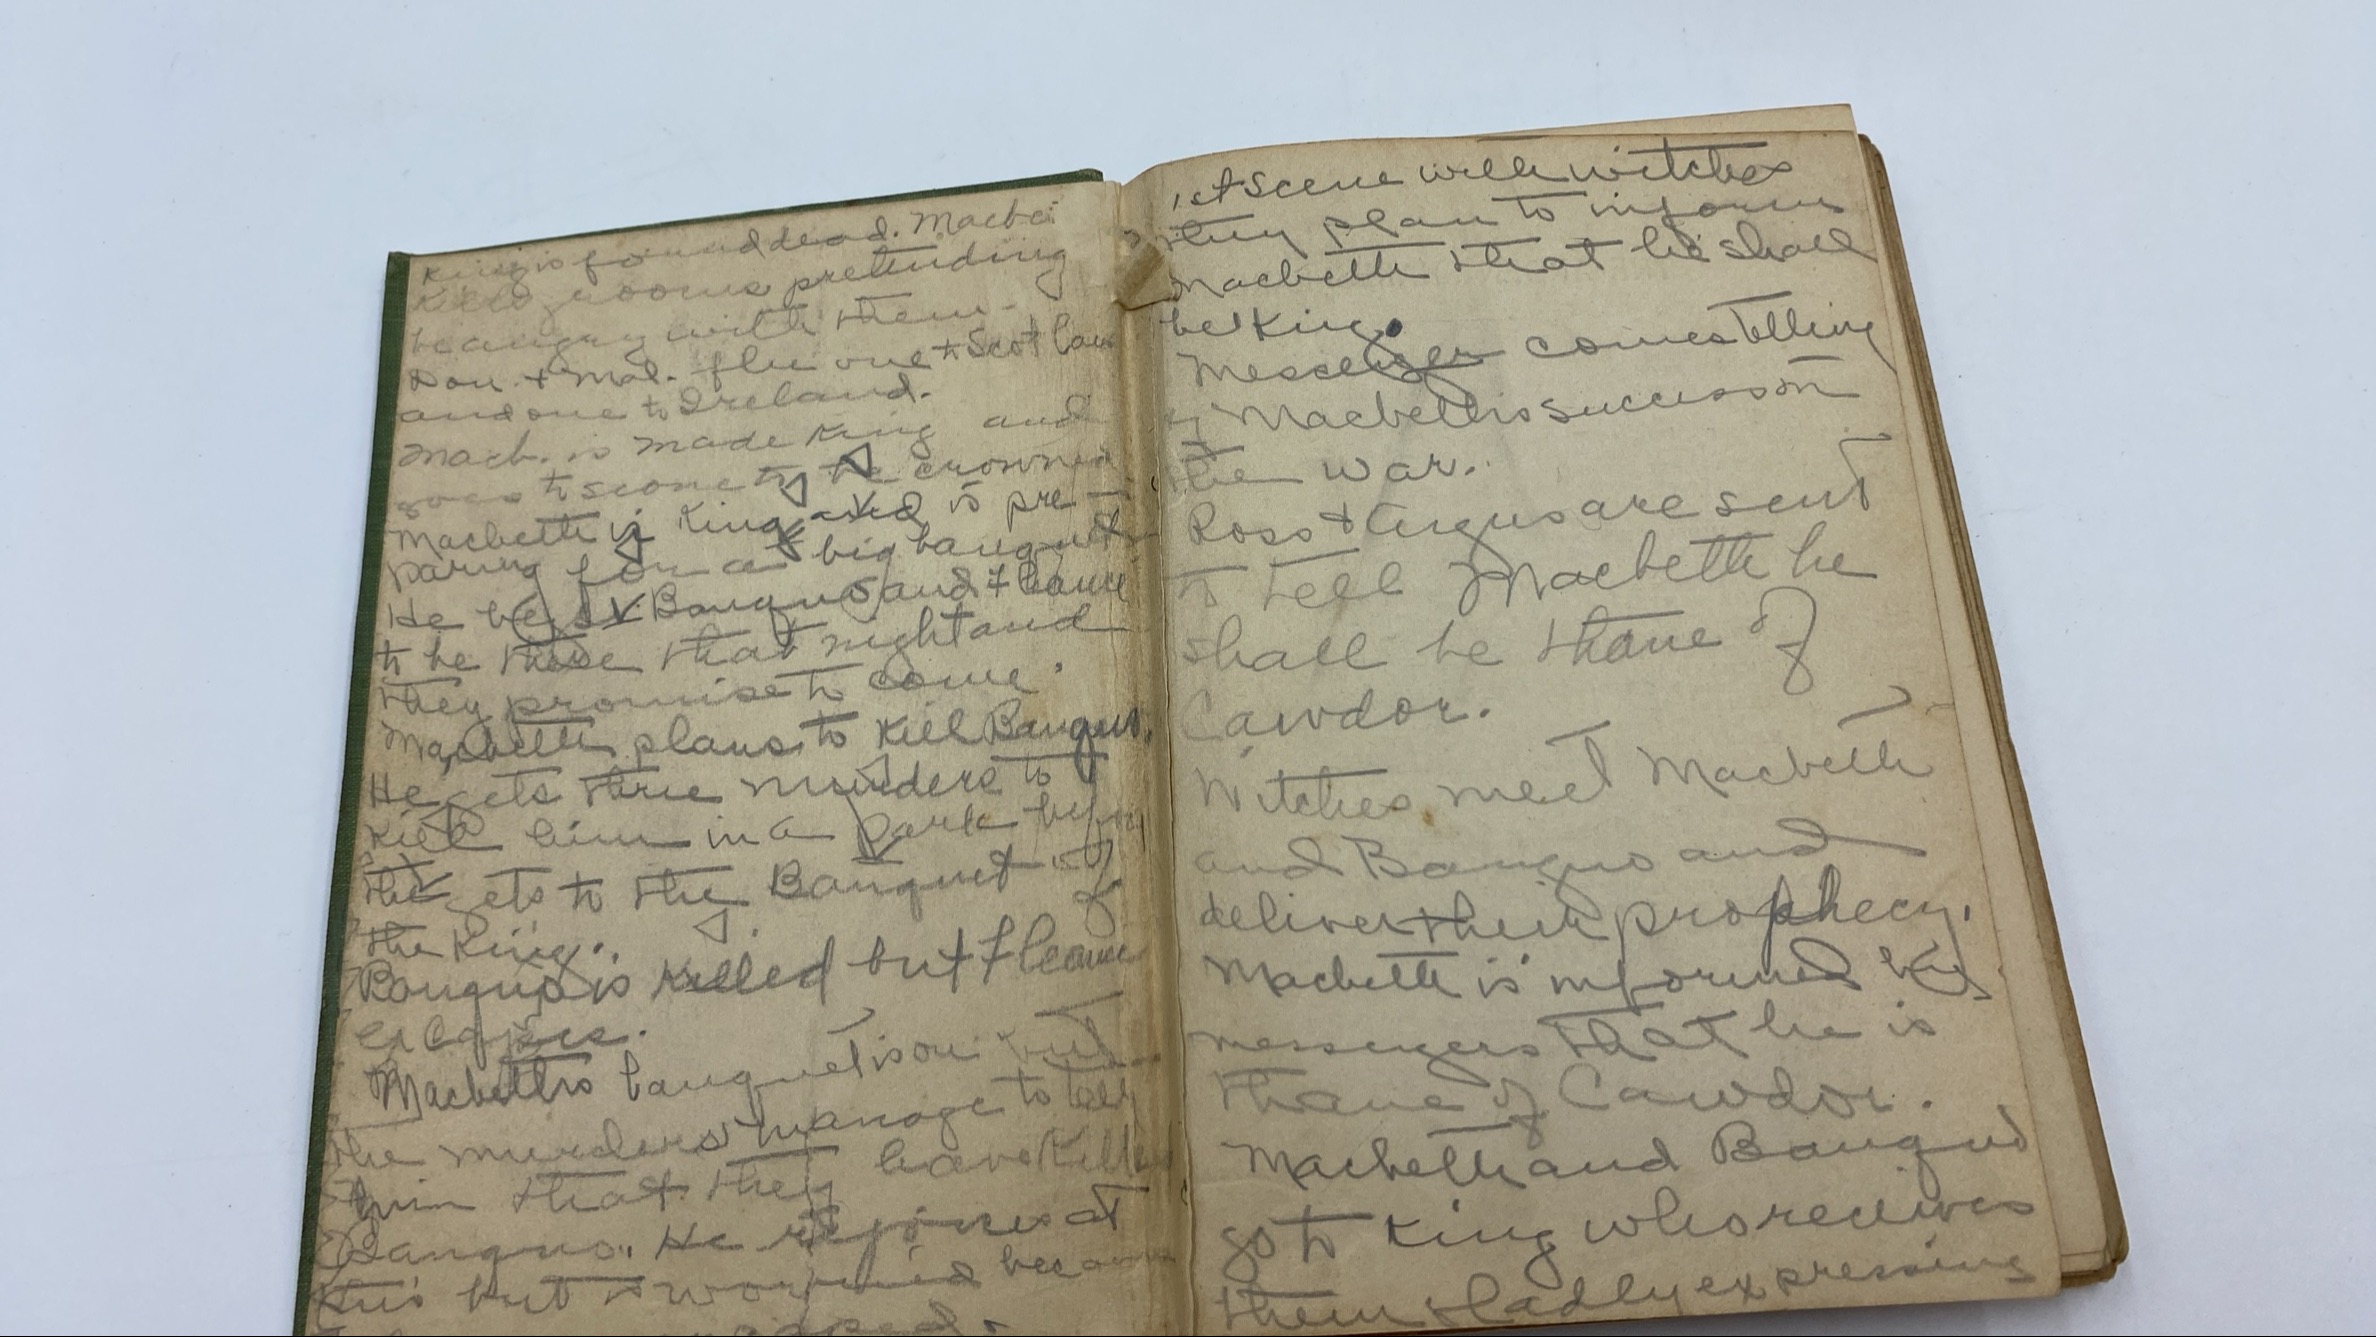 King is found dead. Macbe
Kills grooms pretending
be angry with them.
Don. + Mal. flee one to Scotlan
and one to Ireland.
Macb. is made King and
goes to Scone to be crowned
Macbeth is King and is pre
paring for a big banquet
He begs Banquo and Fleance
to be there that night and
they promise to come.
Macbeth plans to kill Banquo.
He gets three murders to
kill him in a park before
he gets to the Banquet of
the King.
Banquo is killed but Fleance
escapes.
Macbeths banquet is on but
the murders manage to tell
him that they have kille
Banquo. He rejoices at
this but is worried because
1st Scene with witches
they plan to inform
Macbeth that he shall
be King.
Messenger comes telling
of Macbeths success on
the war.
Ross + Angus are sent
to tell Macbeth he
shall be thane of
Cawdor.
Witches meet Macbeth
and Banquo and
deliver their prophecy.
Macbeth is informed by
messengers that he is
Thane of Cawdor.
Macbeth and Banquo
go to King who receives
them gladly expressing